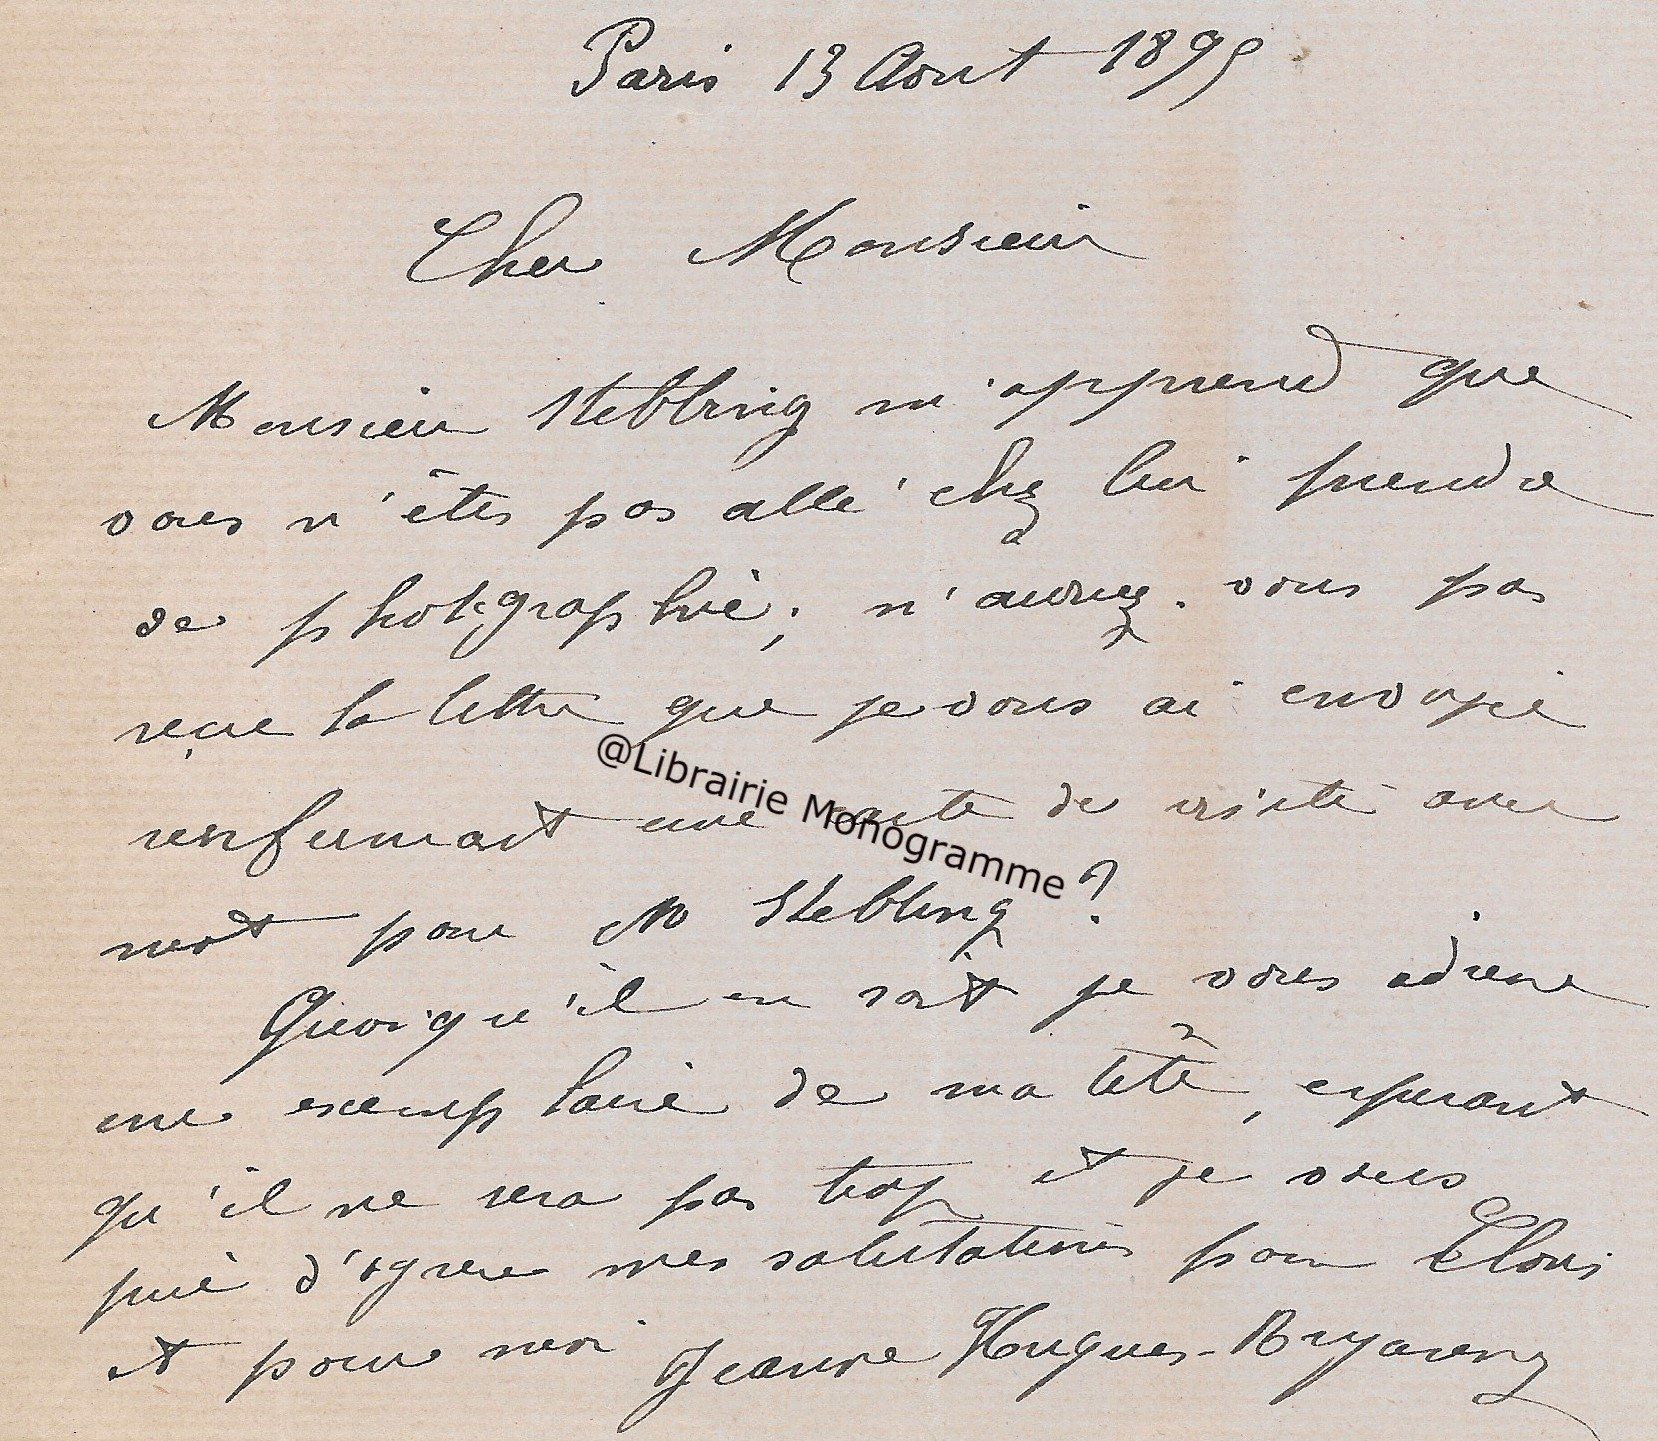 Paris 13 Aout 1895
Cher Monsieur
Monsieur Stebbing m'apprend que
vous n'êtes pas allé chez lui prendre
de photographie; n'aurez-vous pas
reçue la lettre que je vous ai envoyée
renfermant une carte de visite avec
mot pour M Stebbing?
@Librairie Monogramme
Quoiqu'il en soit je vous adresse
une exemplaire de ma tête, esperant
qu'il ne sera pas trop et je vous
prie d'agreer mes salutations pour Clovis
et pour moi Jeanne Hugues-Royannez